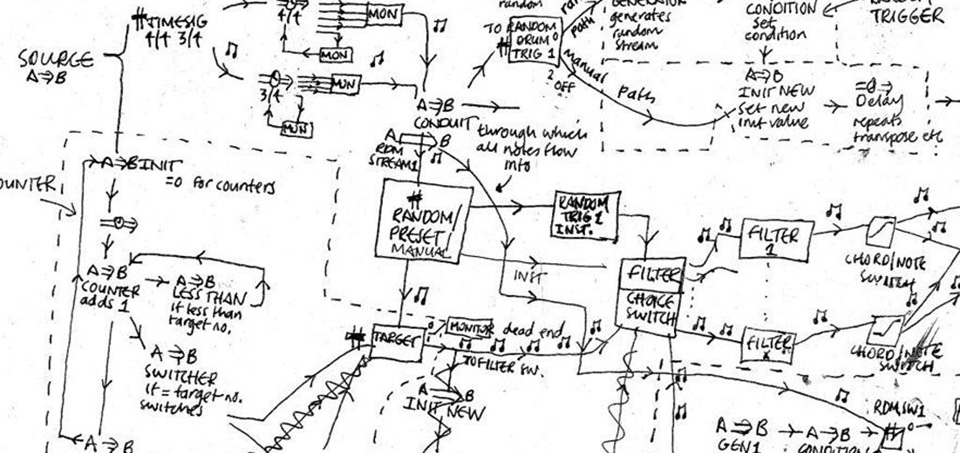 # TIMESIG
4/4 3/4
SOURCE
A⇒B
4/4
MON
MON
3/4
MON
MON
A⇒B
CONDUIT
through which
all notes flow
into
random
TO RANDOM
# DRUM
TRIG 1
path
2
OFF
Manual
Path
GENERATOR
generates
random
stream
CONDITION
Set
condition
RANDOM
TRIGGER
A⇒B
INIT NEW
Set new
init value
Delay
repeats
transpose etc
A⇒B INIT
=0 for counters
OUNTER
A⇒B
COUNTER
adds 1
A⇒B
LESS THAN
if less than
target no.
A⇒B
SWITCHER
if = target no.
switches
A⇒B
A B
RDM
STREAM 1
#
RANDOM/
PRESET/
MANUAL
RANDOM
TRIG 1
INST.
INIT
FILTER
CHOICE
SWITCH
FILTER
1
CHORD/NOTE
SWITCH
FILTER
X
CHORD/NOTE
SWITCH
# TARGET
MONITOR
dead end
TO FILTER SW.
A⇒B
INIT NEW
RDM SW1
A⇒B
GEN1
A⇒B
CONDITION